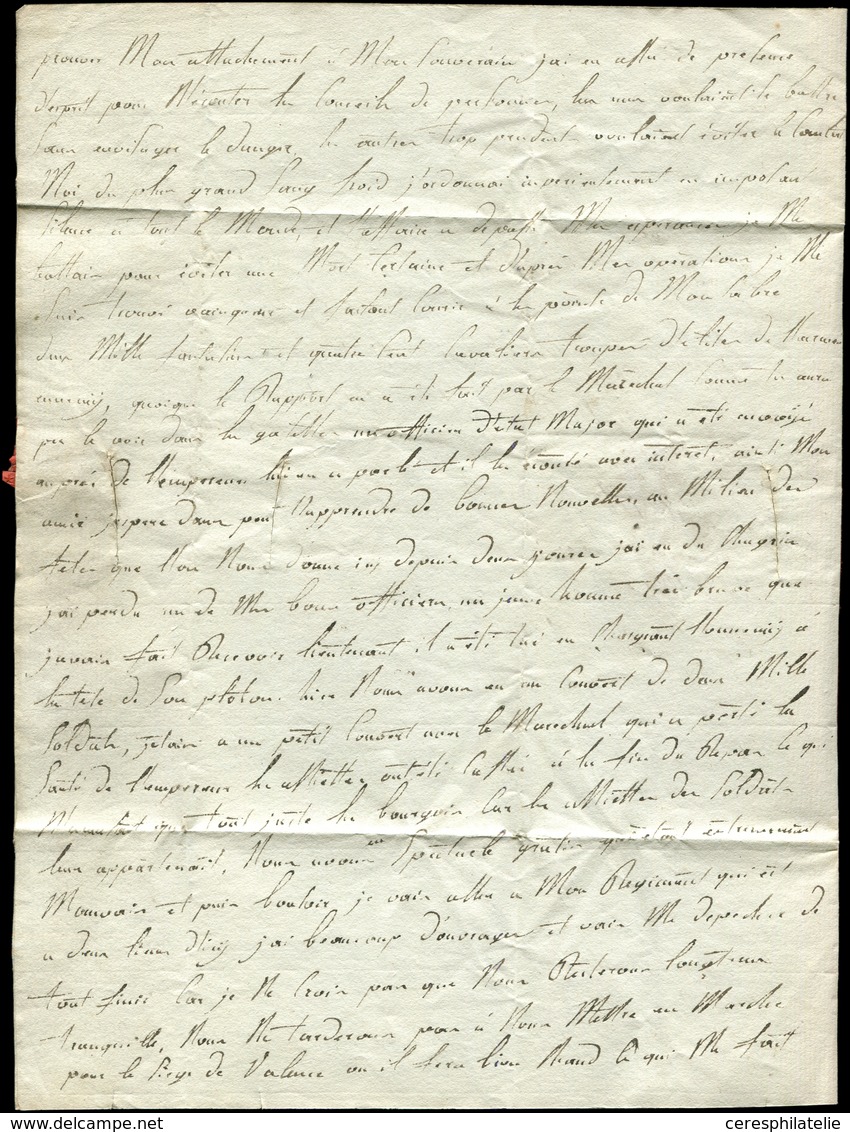 prouver Mon attachement à Mon Souverain j'ai eu assé de presence
d'esprit pour N'écouter les Conseils de personnes, les uns voulaient se battre
sans envisager le danger, les autres trop prudents voulaient éviter le Combat
Moi du plus grand Sang froid j'ordonnai imperieusement en imposant
Silence à tout le Monde, et l'affaire a depassé Mes esperances je Me
battais pour éviter une Mort Certaine et d'après Mes operations je Me
suis trouvé vainqueur et faisant Courir à la pointe de Mon Sabre
deux Mille fantassins et quatre Cent Cavaliers troupes d'elites de l'armée
ennemis, quoique le Rapport en a été fait par le Maréchal Comme tu auras
pu le voir dans les gazettes un officier d'état Major qui a été envoyé
auprès de l'empereur lui en a parlé et il l'a écouté avec interet, ainsi Mon
amie j'espere dans peu t'apprendre de bonnes Nouvelles, au Milieu des
fetes que l'on Nous donne ici depuis deux jours j'ai eu du Chagrin
j'ai perdu un de Mes bons officiers, un jeune homme très brave que
j'avais fait Recevoir lieutenant il a été tué en Chargeant l'ennemis à
la tete de Son ploton. hier Nous avons eu un Couvert de deux Mille
Soldats, j'etais a un petit Couvert avec le Marechal qui a porté la
Santé de l'empereur les assiettes ont été Cassé à la fin du Repas Ce qui
tout juste les bourgois Car les assiettes des Soldats
leur appartenoit, Nous avons un Spectacle gratis qui étoit extremement
Mauvais et puis bonsoir, je vais aller a Mon Regiment qui est
a deux lieues d'ici j'ai beaucoup d'ouvrages et vais Me depecher de
tout finir Car je Ne Crois pas que Nous Resterons longtems
tranquille, Nous Ne tarderons pas à Nous Mettre en Marche
pour le Siege de Valence ou il fera bien Chaud Ce qui Me fait
ceresphilatelie